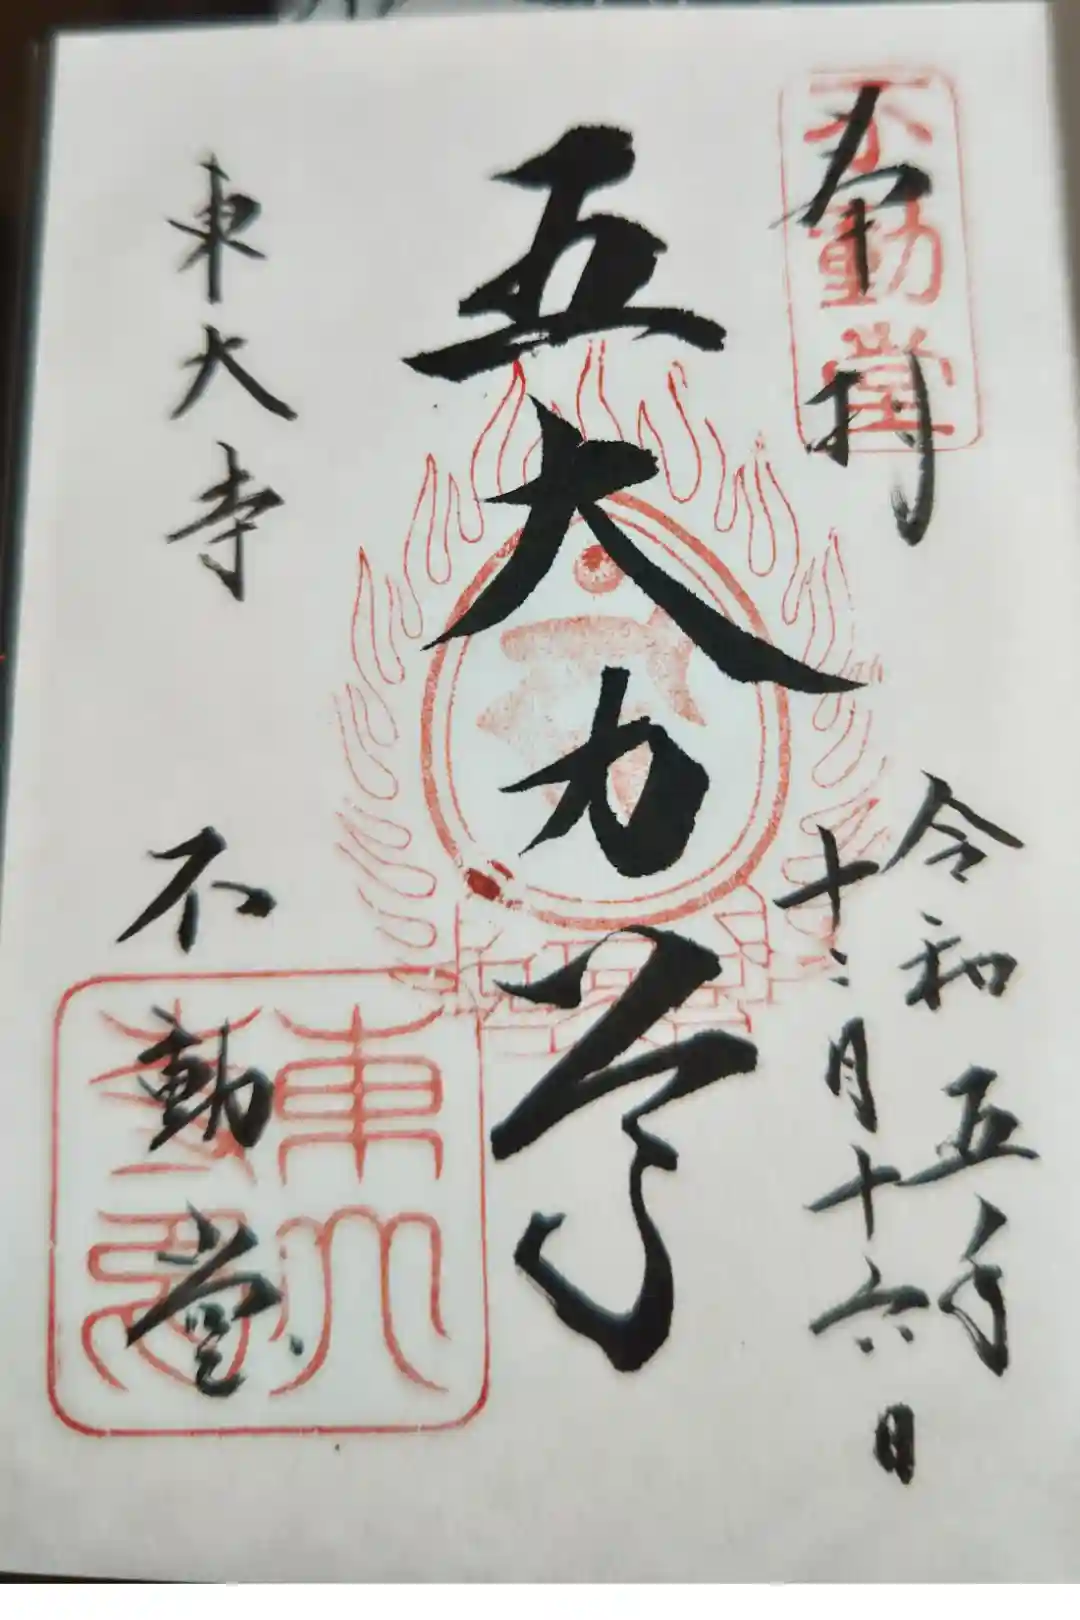 奉拝
不動堂
令和五年
十二月十六日
五大力尊
東大寺 不動堂
東大